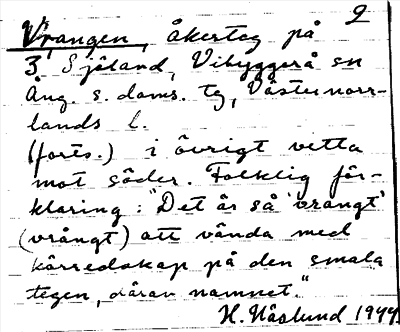 2
Vrangen, åkerteg på
3 Sjöland, Vibyggerå sn
Ång. s. doms. tg, Västernorr-
lands l.
(forts.) i övrigt vetta
mot söder. Folklig för-
klaring: "Det är så 'vrangt'
(vrångt) att vända med
körredskap på den smala
tegen, därav namnet."
H. Näslund 1944.